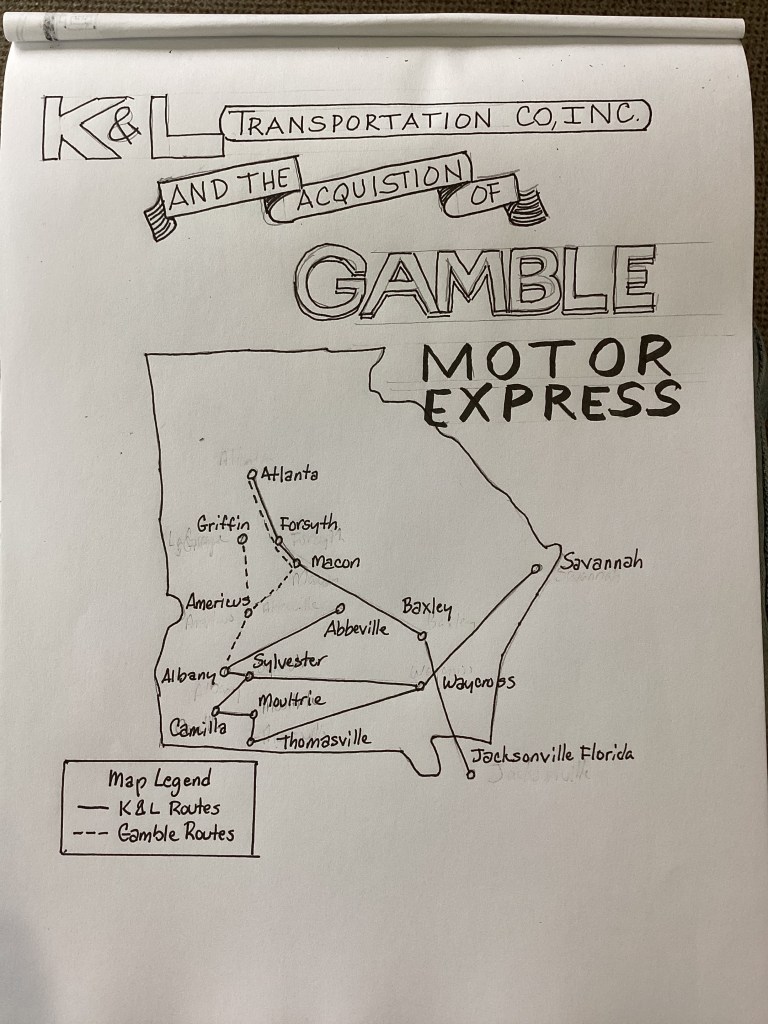 K&L TRANSPORTATION CO, INC.
AND THE ACQUISTION OF
GAMBLE
MOTOR
EXPRESS
Atlanta
Griffin
Forsyth
Macon
Savannah
Americus
Baxley
Abbeville
Albany
Sylvester
Waycross
Moultrie
Camilla
Thomasville
Jacksonville Florida
Map Legend
K&L Routes
Gamble Routes